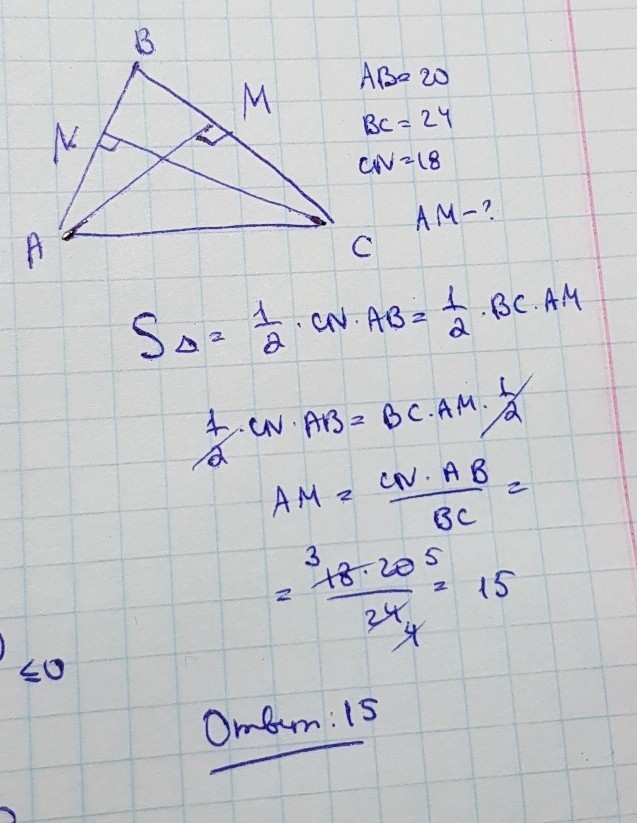 B
N
M
A
C
AB = 20
BC = 24
CN = 18
AM - ?
S△ = 1/2 · CN · AB = 1/2 · BC · AM
1/2 · CN · AB = BC · AM · 1/2
AM = CN · AB / BC =
= 3 18 · 20 5 / 24 4 = 15
) ≤0
Ответ: 15